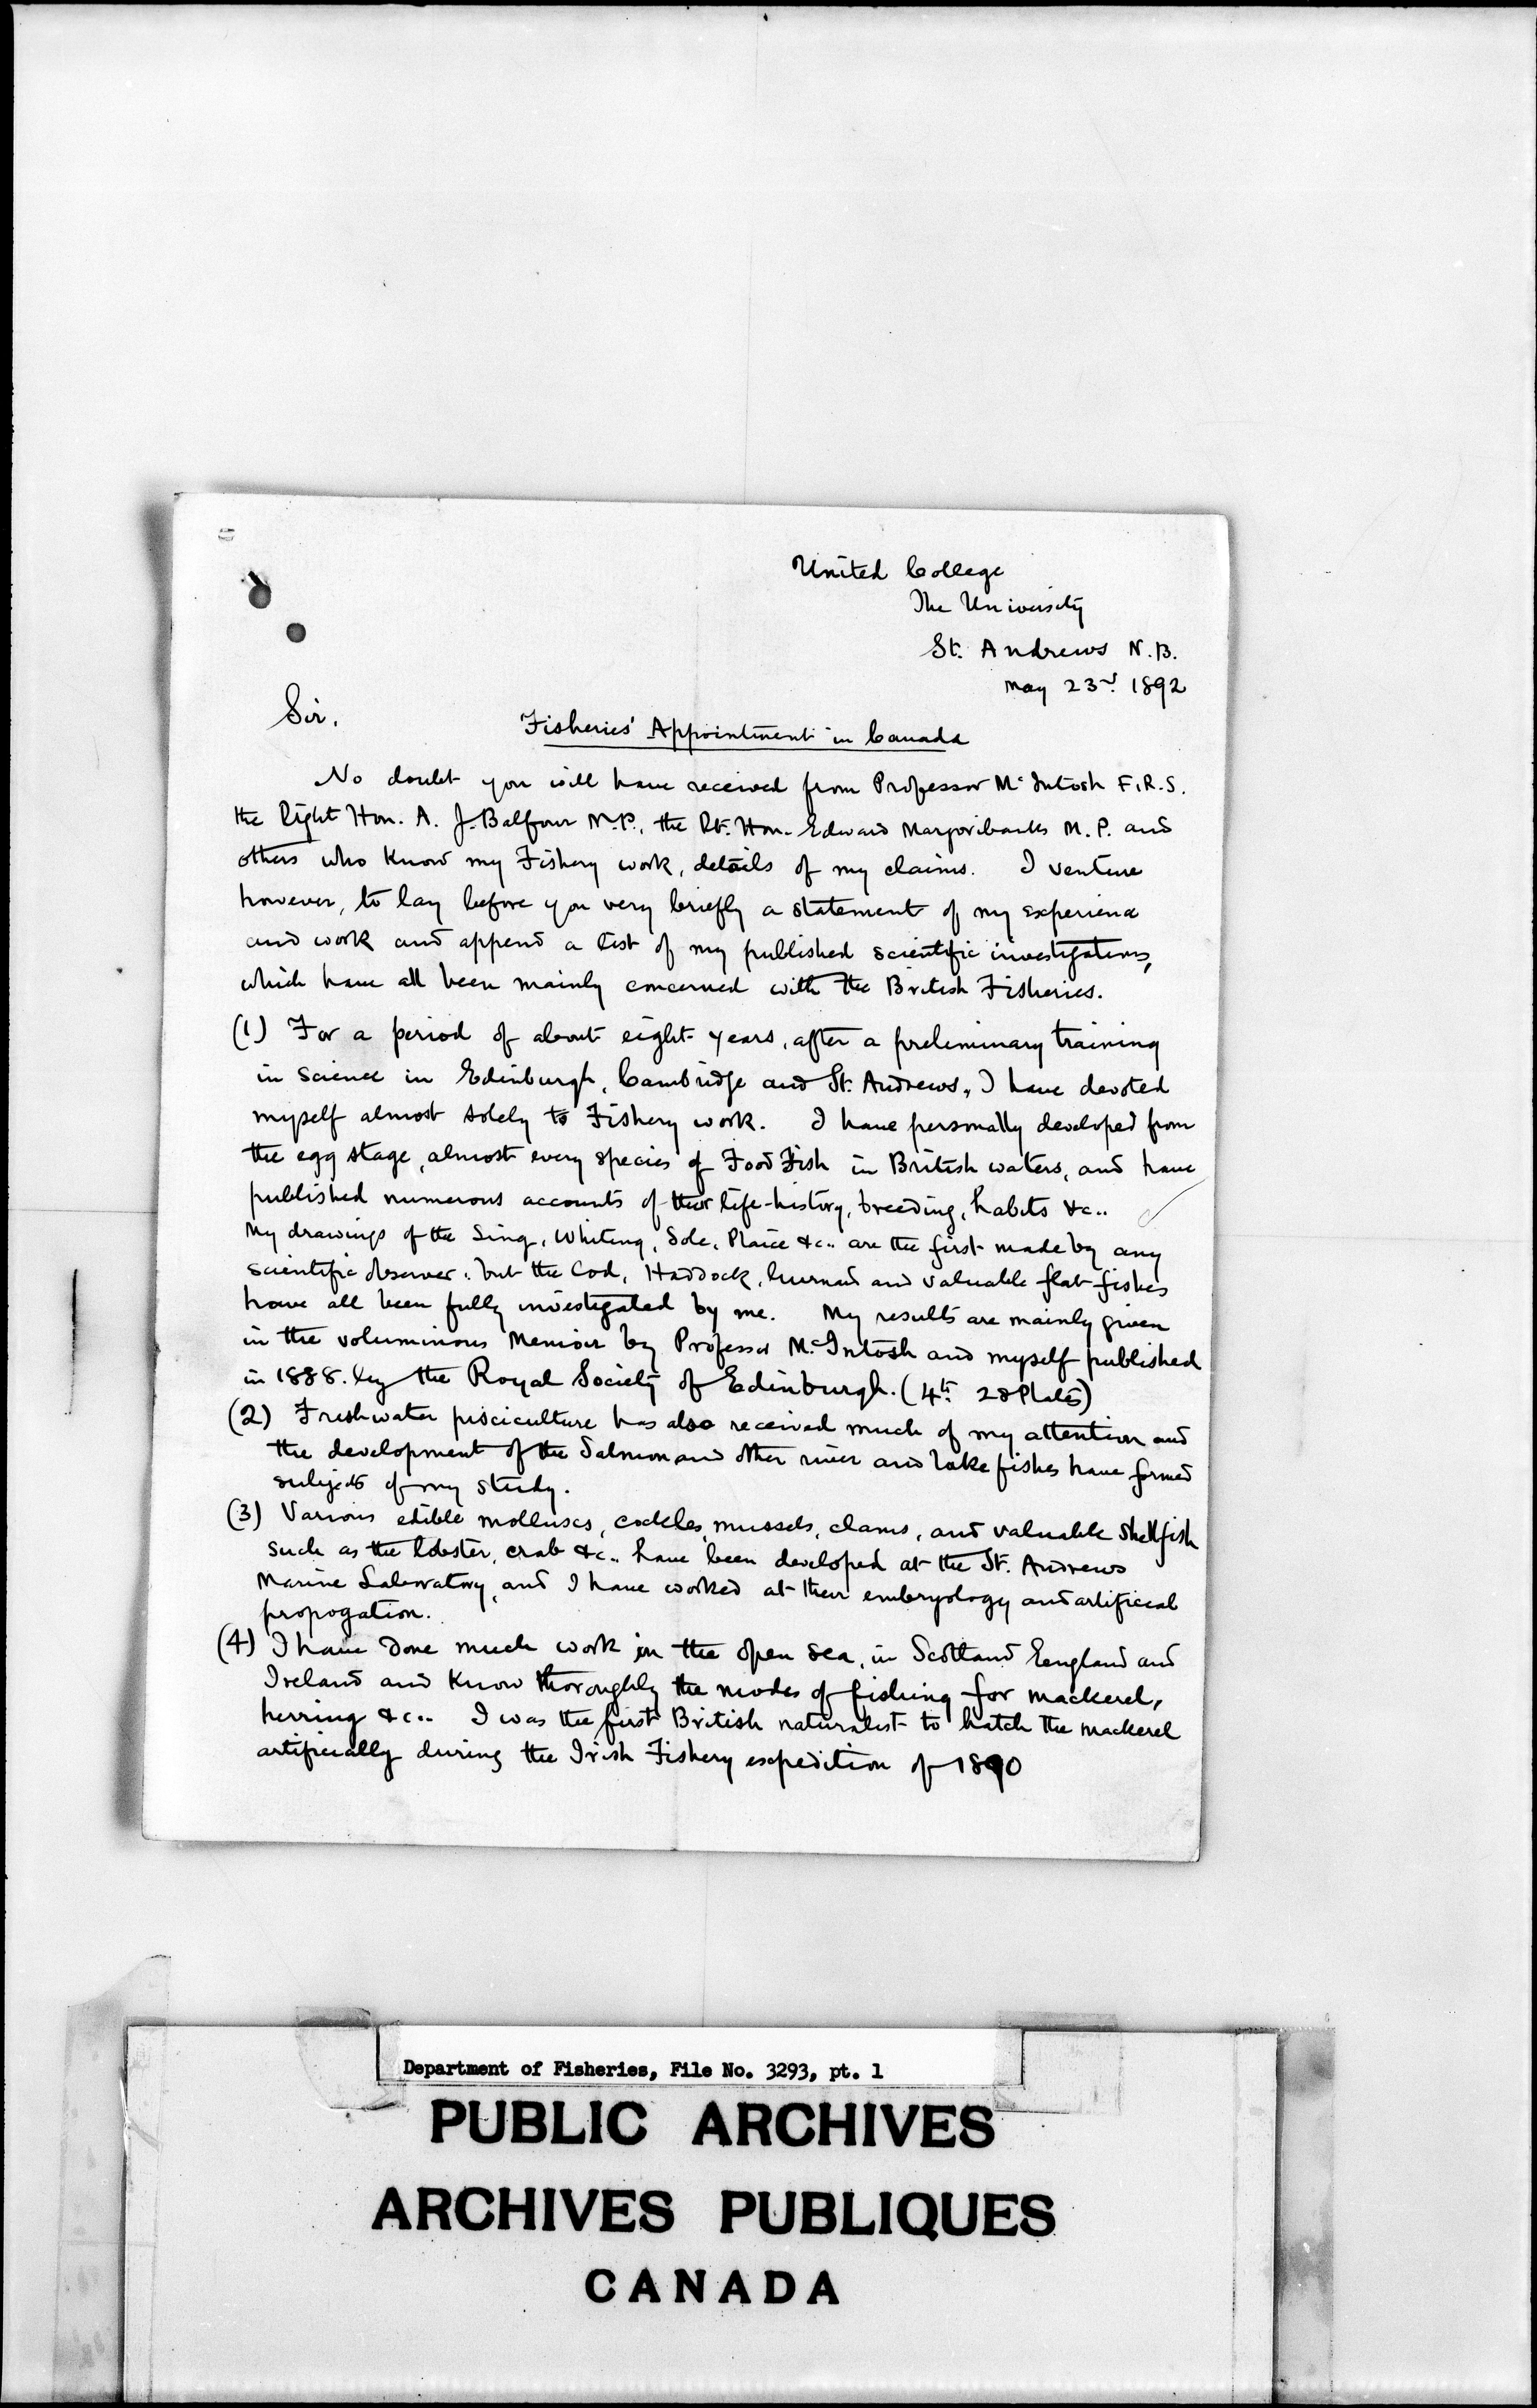 United College
The University
St. Andrews N.B.
May 23rd. 1892
Sir,
Fisheries' Appointment in Canada
No doubt you will have received from Professor McIntosh F.R.S.
the Right Hon. A. J. Balfour M.P., the Rt. Hon. Edward Marjoribanks M.P. and
others who know my Fishery work, details of my claims. I venture
however, to lay before you very briefly a statement of my experience
and work and append a list of my published scientific investigations,
which have all been mainly concerned with the British Fisheries.
(1) For a period of about eight years, after a preliminary training
in science in Edinburgh, Cambridge and St. Andrews, I have devoted
myself almost solely to Fishery work. I have personally developed from
the egg stage, almost every species of Food Fish in British waters, and have
published numerous accounts of their life-history, breeding, habits &c..
My drawings of the Ling, Whiting, Sole, Plaice &c.. are the first made by any
scientific observer: but the Cod, Haddock, Gurnard and valuable flat-fishes
have all been fully investigated by me. My results are mainly given
in the voluminous Memoir by Professor McIntosh and myself published
in 1888. by the Royal Society of Edinburgh. (4to. 28 Plates)
(2) Freshwater pisciculture has also received much of my attention and
the development of the Salmon and other river and lake fishes have formed
subjects of my study.
(3) Various edible molluscs, cockles, mussels, clams, and valuable shellfish
such as the lobster, crab &c.. have been developed at the St. Andrews
Marine Laboratory, and I have worked at their embryology and artificial
propogation.
(4) I have done much work in the open sea, in Scotland England and
Ireland and know thoroughly the modes of fishing for mackerel,
herring &c.. I was the first British naturalist to hatch the mackerel
artificially during the Irish Fishery expedition of 1890
Department of Fisheries, File No. 3293, pt. 1
PUBLIC ARCHIVES
ARCHIVES PUBLIQUES
CANADA